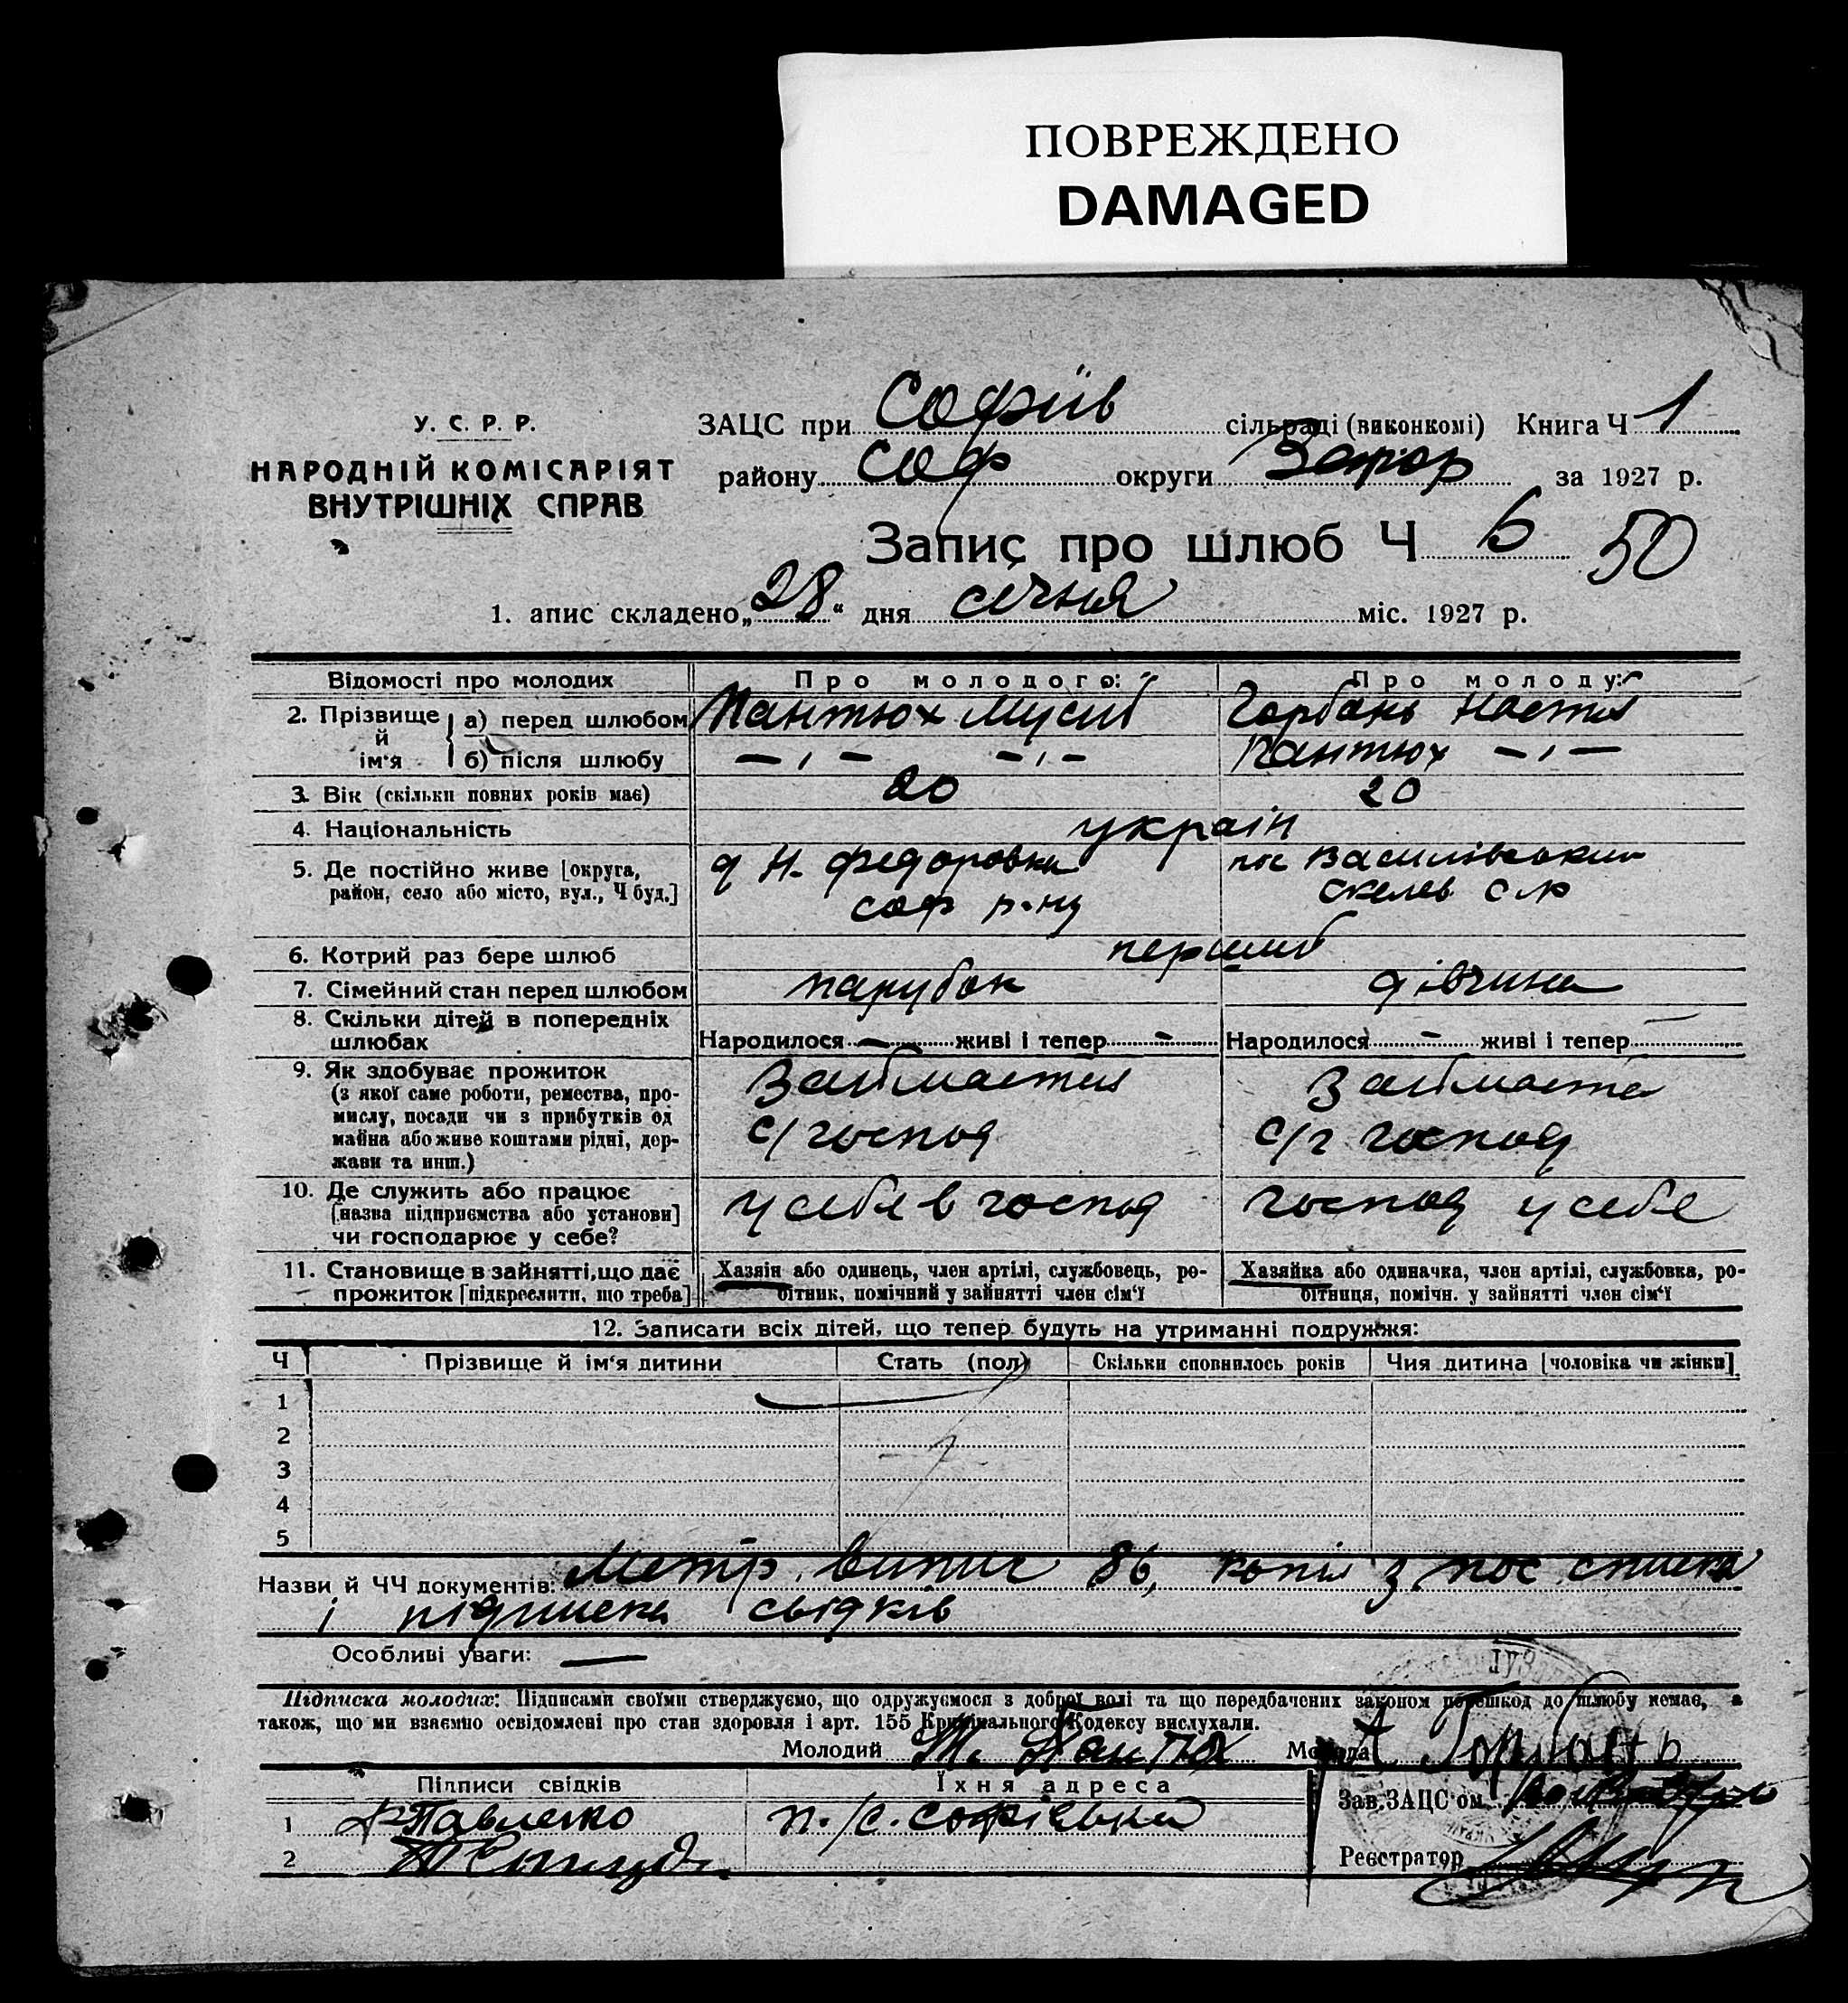 ПОВРЕЖДЕНО
DAMAGED
У. С. Р. Р.
НАРОДНІЙ КОМІСАРІЯТ
ВНУТРІШНІХ СПРАВ
ЗАЦС при Софіїв сільраді (виконкомі) Книга Ч 1
району Соф округи Запор за 1927 р.
Запис про шлюб Ч 6 50
1. апис складено „28“ дня січня міс. 1927 р.
Відомості про молодих Про молодого: Про молоду:
2. Прізвище й ім'я а) перед шлюбом Пантюх Мусій Горбань Настя
б) після шлюбу — ‚ — — ‚ — Пантюх — ‚ —
3. Вік (скільки повних років має) 20 20
4. Національність україн
5. Де постійно живе [округа, д Н. Федоровка пос Василівський
район, село або місто, вул., Ч буд.] Соф р-ну Скелев с/р
6. Котрий раз бере шлюб перший
7. Сімейний стан перед шлюбом парубок дівчина
8. Скільки дітей в попередніх
шлюбах Народилося — живі і тепер — Народилося — живі і тепер
9. Як здобуває прожиток Займается Займаетя
(з якої саме роботи, ремества, про-
мислу, посади чи з прибутків од с/господ с/г господ
майна або живе коштами рідні, дер-
жави та инш.)
10. Де служить або працює у себе в господ господ у себе
[назва підприємства або установи]
чи господарює у себе?
11. Становище в зайнятті, що дає Хазяін або одинець, член артілі, службовець, ро- Хазяйка або одиначка, член артілі, службовка, ро-
прожиток [підкреслити, що треба] бітник, помічний у зайнятті член сім'ї бітниця, помічн. у зайнятті член сім'ї
12. Записати всіх дітей, що тепер будуть на утриманні подружжя:
Ч Прізвище й ім'я дитини Стать (пол) Скільки сповнилось років Чия дитина [чоловіка чи жінки]
1
2
3
4
5
Назви й ЧЧ документів: Метр. випис 86, копія з пос списка
і підписка свідків
Особливі уваги: —
Підписка молодих: Підписами своїми стверджуємо, що одружуємося з доброї волі та що передбачених законом перешкод до шлюбу немає, а
також, що ми взаємно освідомлені про стан здоровля і арт. 155 Кримінального Кодексу вислухали.
Молодий М. Пантюх Молода А Горбань
Підписи свідків Їхня адреса Зав. ЗАЦС'ом
1 Павленко п./с. Софіевка
2 Реєстратор